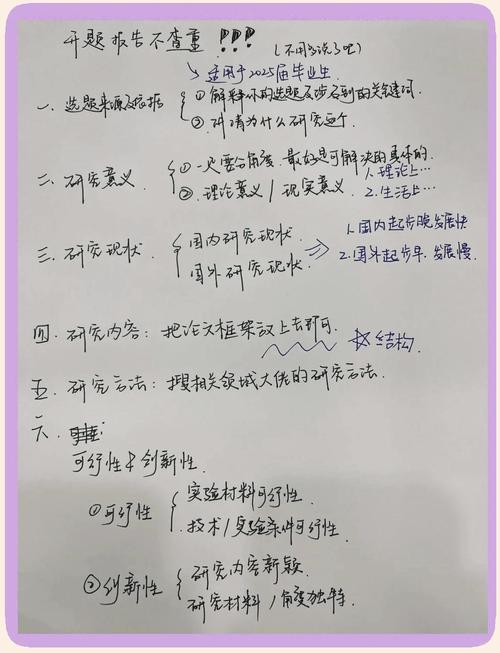 开题报告不查重!!!
(不用多说了吧)
适用于2025届毕业生
一、选题来源及依据
①解释你的选题及涉及到的关键词.
②讲清为什么研究这个.
二、研究意义.
①一定要分角度.最好是可解决的具体的.
②理论意义/现实意义.
1.理论上…
2.生活上…
三、研究现状.
国内研究现状.
国外研究现状.
1.国内起步晚发展快
2.国外起步早.发展慢.
四.研究内容:把论文框架放上去即可.
☆结构.
五.研究方法:搜相关领域大佬的研究方法.
六.
可行性&创新性.
①可行性
实验材料可行性.
技术/实验条件可行性.
②创新性
研究内容新颖.
研究材料/角度独特.